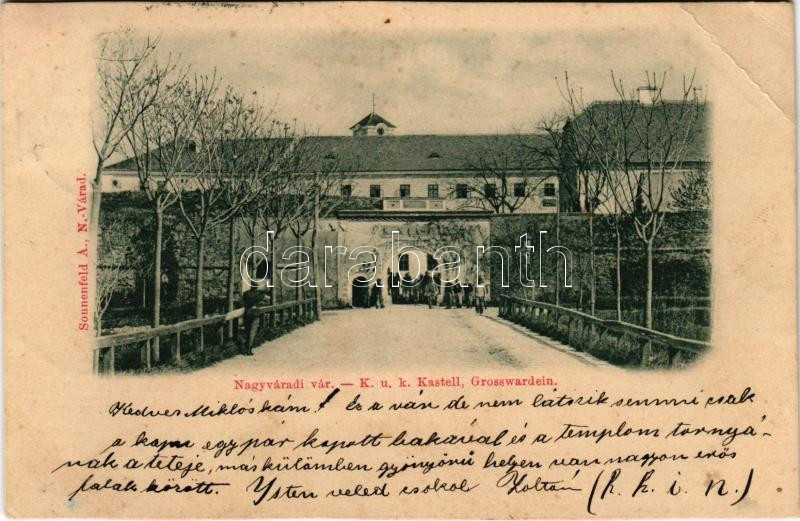 Sonnenfeld A., N.-Várad.
darabanth
Nagyváradi vár. — K. u. k. Kastell, Grosswardein.
Kedves Miklóskám! Ez a vár de nem látszik semmi csak
a kapu egy pár kopott bakával és a templom tornyá-
nak a teteje, máskülömben gyönyörű helyen van nagyon erős
falak között. Ysten veled csokol Zoltán (k. k. i. n.)